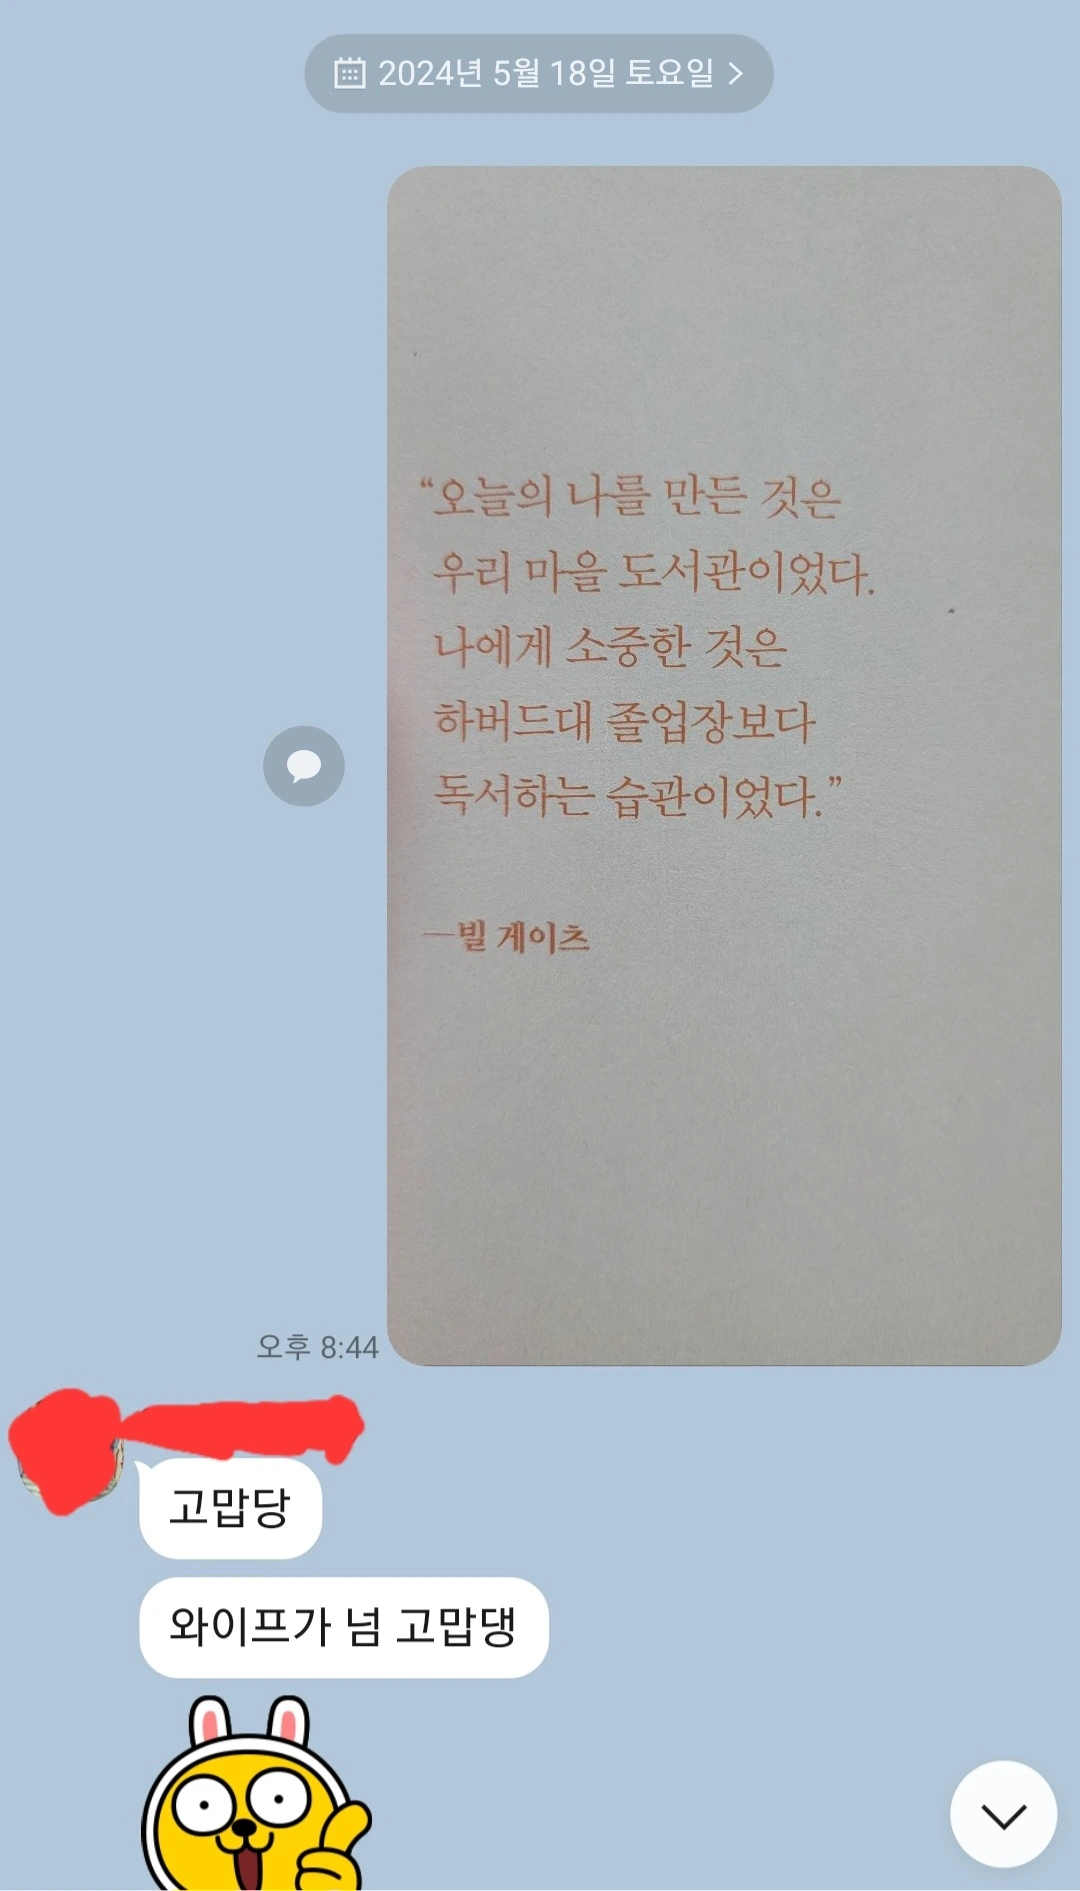 2024년 5월 18일 토요일
“오늘의 나를 만든 것은
우리 마을 도서관이었다.
나에게 소중한 것은
하버드대 졸업장보다
독서하는 습관이었다.”
—빌 게이츠
오후 8:44
고맙당
와이프가 넘 고맙댕